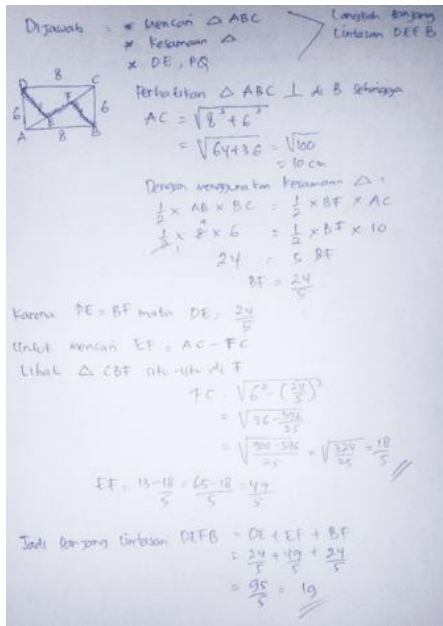 Dijawab : * Mencari △ ABC
* Kesamaan △
* DE, PQ
Langkah Panjang
Lintasan DEFB
8
D C
F
6 6
E
A 8 B
Perhatikan △ ABC ⊥ di B sehingga
AC = √8² + 6²
= √64+36 = √100
= 10 cm
Dengan menggunakan kesamaan △ :
1/2 × AB × BC = 1/2 × BF × AC
1/2 × 8 × 6 = 1/2 × BF × 10
24 = 5 BF
BF = 24/5
Karena DE = BF maka DE = 24/5
Untuk mencari EF = AC - FC
Lihat △ CBF siku-siku di F
FC = √6² - (24/5)²
= √36 - 576/25
= √900-576/25 = √324/25 = 18/5
EF = 13-18/5 = 65-18/5 = 49/5
Jadi Panjang lintasan DEFB = DE + EF + BF
= 24/5 + 49/5 + 24/5
= 95/5 = 19